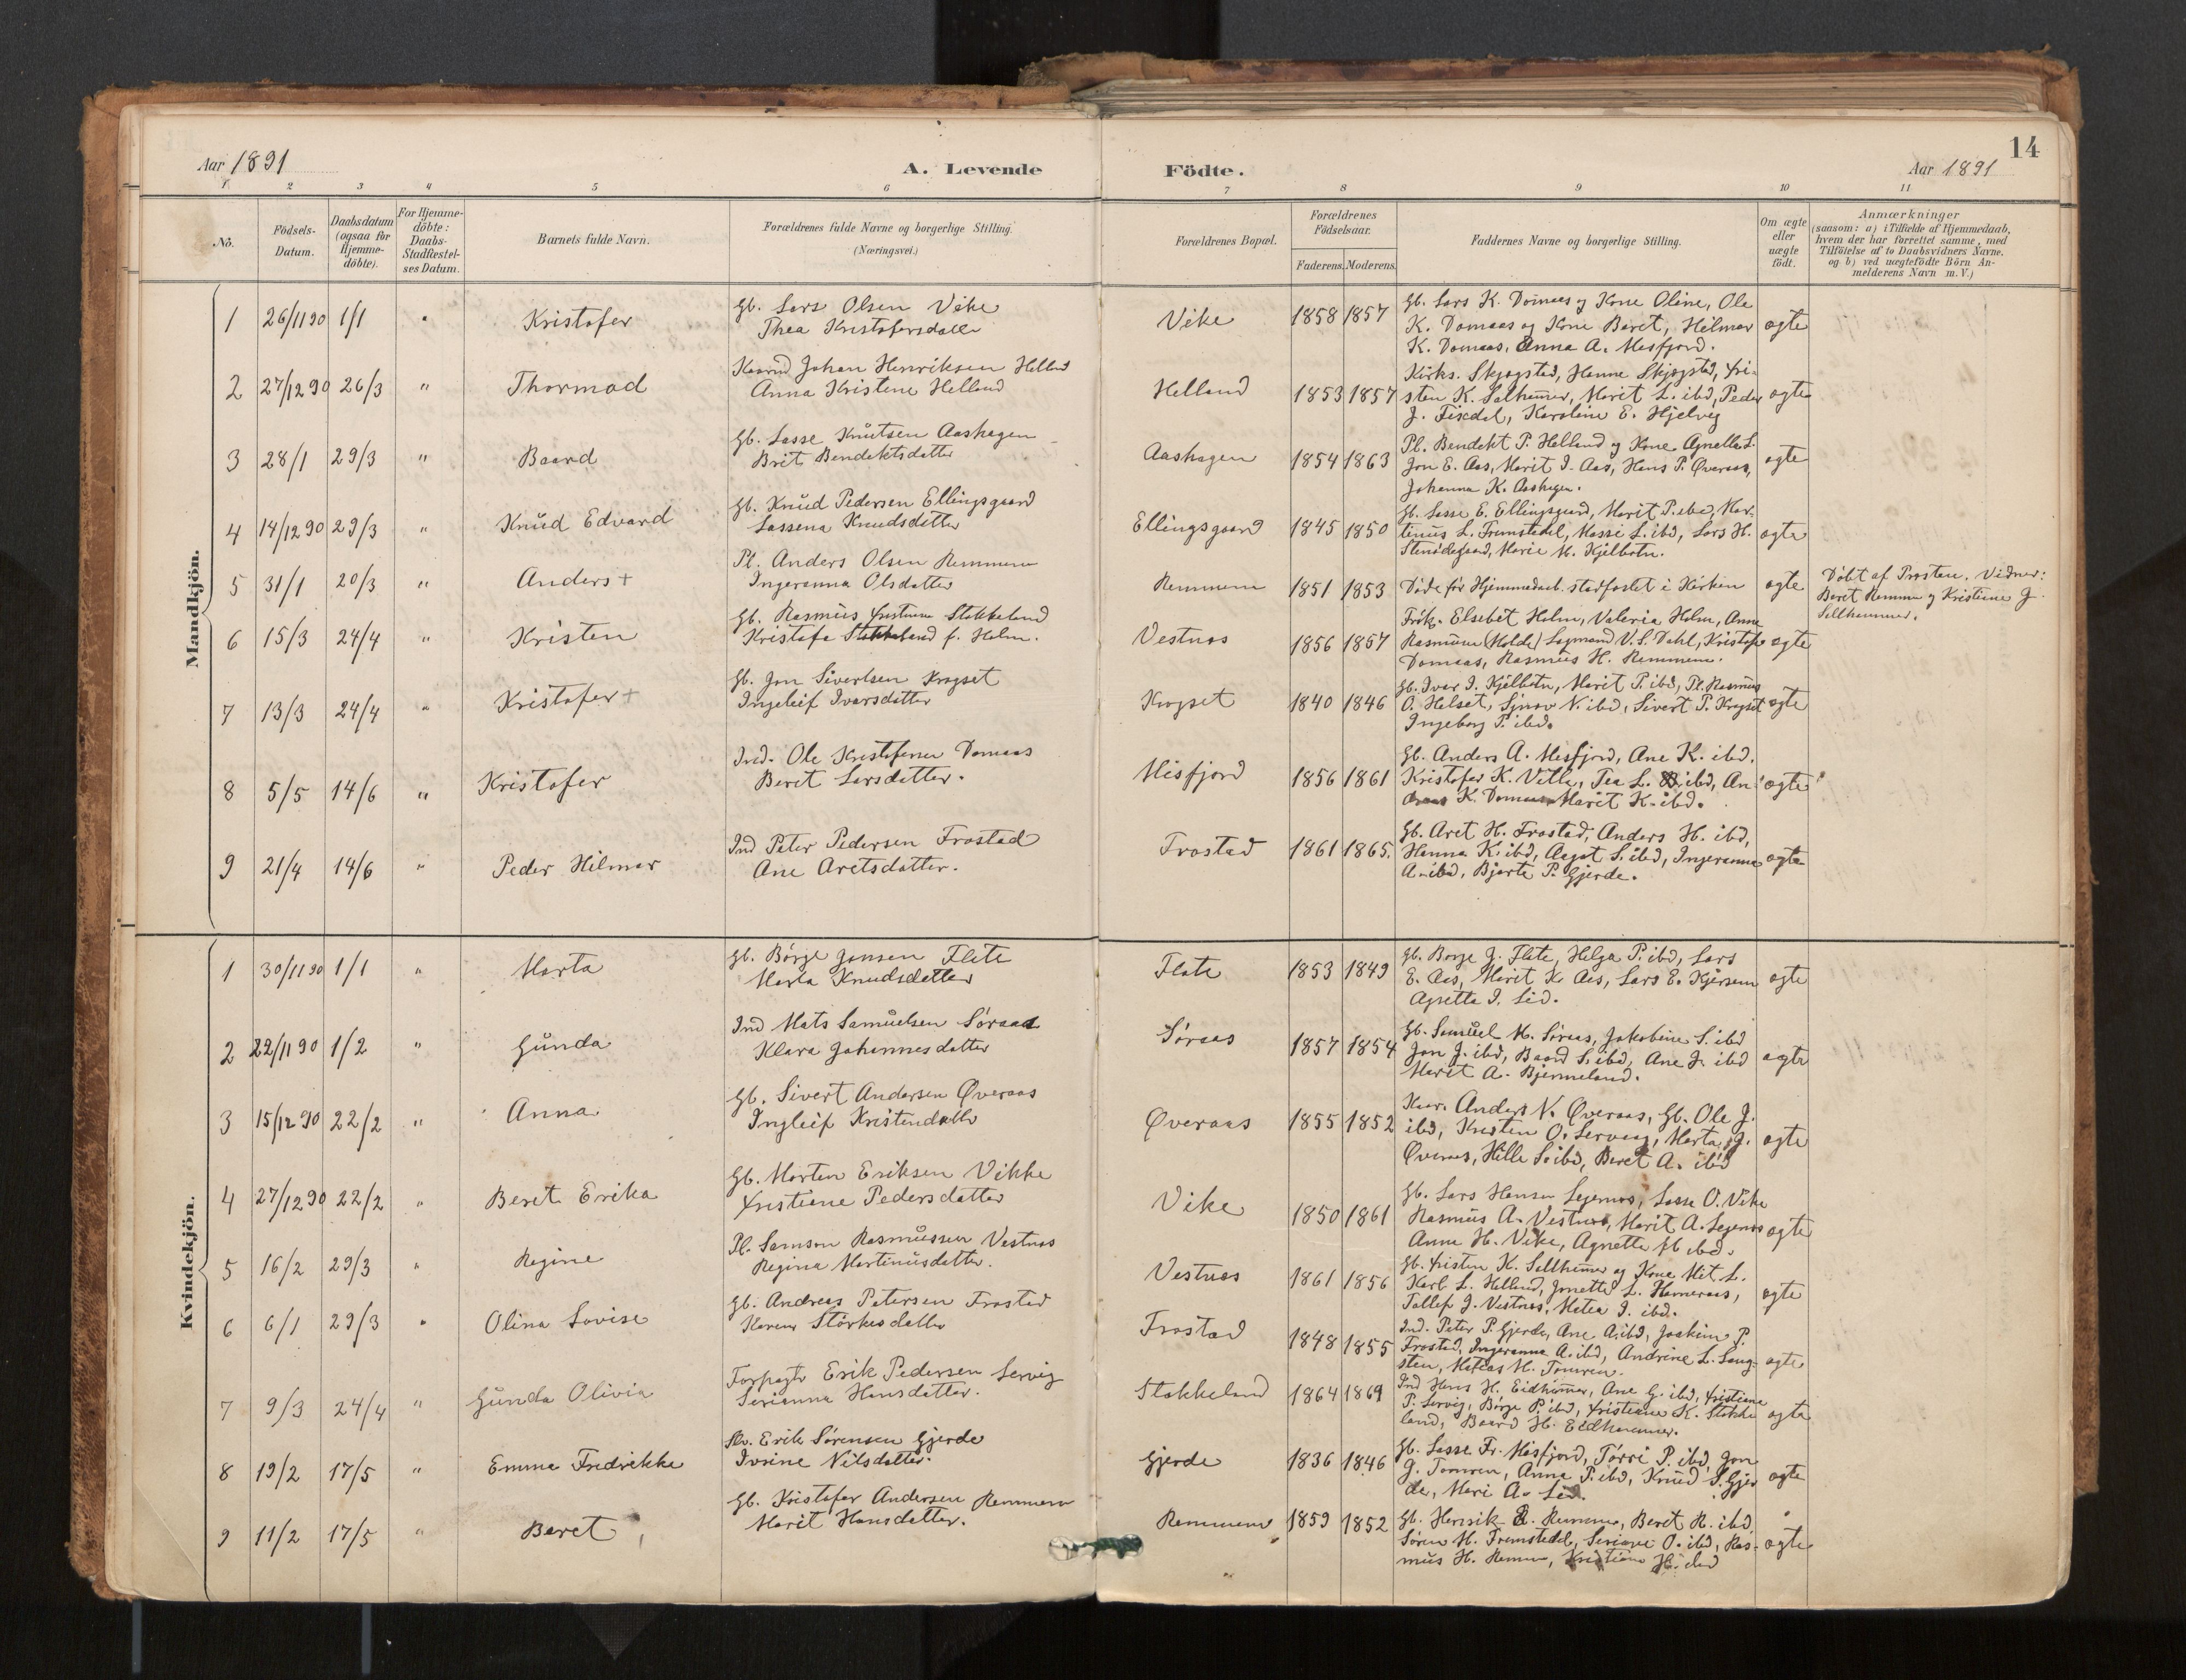 14
Aar 1891
A. Levende Födte.
Aar 1891
1 2 3 4 5 6 7 8 9 10 11
No.
Födsels-Datum.
Daabsdatum (ogsaa for Hjemme-döbte).
For Hjemme-döbte: Daabs-Stadfæstel-ses Datum.
Barnets fulde Navn.
Forældrenes fulde Navne og borgerlige Stilling. (Næringsvei.)
Forældrenes Bopæl.
Forældrenes Födselsaar.
Faderens. Moderens.
Faddernes Navne og borgerlige Stilling.
Om ægte eller uægte födt.
Anmærkninger
(saasom: a) i Tilfælde af Hjemmedaab,
hvem der har forrettet samme, med
Tilföielse af to Daabsvidners Navne.
og b) ved uægtefödte Börn An-
melderens Navn m. V.)
Mandkjön.
1 26/11 90 1/1 " Kristofer
Gb. Lars Olsen Vike
Thea Kristofersdatter
Vike 1858 1857
Gb. Lars K. Domaas og Kone Oline, Ole
K. Domaas og Kone Beret, Hilmar
K. Domaas, Anna A. Misfjord.
ægte
2 27/12 90 26/3 " Thormod
Johan Henriksen Helland
Anna Kristine Helland
Helland 1853 1857
Kirks. Skjøgstad, Hanne Skjøgstad, Kri-
sten K. Salthammer, Marit L. ibd, Peder
J. Fixdal, Karoline E. Hjelvig
ægte
3 28/1 29/3 " Baard
Gb. Lasse Knutsen Aashagen
Brit Bendiktsdatter
Aashagen 1854 1863
Pl. Bendikt P. Helland og Kone Agnetha L.
Jon E. Aas, Marit I. Aas, Hans P. Øveraas,
Johanna K. Aashagen.
ægte
4 14/12 90 29/3 " Knud Edvard
Gb. Knud Pedersen Ellingsgaard
Lassena Knudsdatter
Ellingsgaard 1845 1850
Gb. Lasse E. Ellingsgaard, Marit P. ibd, Mar-
tinus L. Fremstedal, Massi L. ibd, Lars H.
Stenødegaard, Marie M. Kjelbotn.
ægte
5 31/1 20/3 " Anders +
Pl. Anders Olsen Remmem
Ingeranna Olsdatter
Remmem 1851 1853
Døde før Hjemmedaab. stadfæstet i Kirken
ægte
Döbt af Prosten. Vidner:
Beret Remmem og Kristiane J.
Sellhammer.
6 15/3 24/4 " Kristen
Gb. Rasmus Kristensen Stokkeland
Kristofa Stokkeland f. Holm.
Vestnæs 1856 1857
Frök. Elsebet Holm, Valeria Holm, Anne
Rasmusen (Molde) Lagmand V. S. Dahl, Kristofer
Domaas, Rasmus H. Remmem.
ægte
7 13/3 24/4 " Kristofer +
Gb. Jon Sivertsen Krogset
Ingeleif Ivarsdatter
Krogset 1840 1846
Gb. Ivar I. Kjelbotn, Marit P. ibd, Pl. Rasmus
O. Helset, N. ibd, Sivert P. Krogset
Ingeborg P. ibd.
ægte
8 5/5 14/6 " Kristofer
Ind. Ole Kristofersen Domaas
Beret Larsdatter.
Misfjord 1856 1861
Gb. Anders A. Misfjord, Ane K. ibd.
Kristofer K. Villa, Tea L. ibd, An-
dreas K. Domaas, Marit K. ibd.
ægte
9 21/4 14/6 " Peder Hilmar
Ind Peter Pedersen Frostad
Ane Aretsdatter.
Frostad 1861 1865.
Gb. Aret H. Frostad, Anders H. ibd,
Hanna K. ibd, Aagot S. ibd, Ingeranna
A. ibd, Bjarte P. Gjerde.
ægte
Kvindekjön.
1 30/11 90 1/1 " Marta
Gb. Börge Jonsen Flate
Marta Knudsdatter
Flate 1853 1849
Gb. Borge J. Flate, Helga P. ibd, Lars
E. Aas, Marit K. Aas, Lars E. Kjersem
Agnetta I. Lid.
ægte
2 22/11 90 1/2 " Gunda
Ind Mats Samuelsen Söraas
Klara Johannesdatter
Söraas 1857 1854
Gb. Samuel M. Söraas, Jakobine S. ibd
Jon J. ibd, Baard S. ibd, Ane J. ibd
Marit A. Bjermeland.
ægte
3 15/12 90 22/2 " Anna
Gb. Sivert Andersen Øveraas
Ingleif Kristendatter
Øveraas 1855 1852
Kaar. Anders N. Øveraas, Gb. Ole J.
ibd, Kristen O. Serveig, Marta J.
Øveraas, Hille S. ibd, Beret A. ibd
ægte
4 27/12 90 22/2 " Beret Erika
Gb. Morten Eriksen Vikke
Kristiane Pedersdatter
Vike 1850 1861
Gb. Lars Hansen Legernæs, Lasse O. Vike
Rasmus A. Vestnæs, Marit A. Legernæs
Anne H. Vike, Agnette M. ibd.
ægte
5 16/2 29/3 " Regine
Pl. Samson Rasmussen Vestnæs
Regina Martinusdatter.
Vestnæs 1861 1856
Gb. Kristen K. Sellhammer og Kone Mit L.
Karl L. Helland, Jonetta L. Hameraas,
Tollef J. Vestnæs, Matea I. ibd.
ægte
6 6/1 29/3 " Olina Lovise
Gb. Andreas Petersen Frostad
Karen Störkesdatter
Frostad 1848 1855
Ind. Peter P. Gjerde, Ane A. ibd, Joakim P.
Frostad, Ingeranna A. ibd, Andrine L. Saug-
sten, Matias M. Tomren.
ægte
7 9/3 24/4 " Gunda Olivia
Forpagtr Erik Pedersen Servig
Serianna Hansdatter.
Stokkeland 1864 1869
Ind Hans H. Eidhammer, Ane G. ibd, Kristiane
P. Servig, Börge P. ibd, Kristiane K. Stokke
land, Baard H. Eidhammer.
ægte
8 19/2 17/5 " Emma Fredrikke
Erik Sörensen Gjerde
Ivrine Nilsdatter.
Gjerde 1836 1846
Gb. Lasse Fr. Misfjord, Törri P. ibd, Jon
J. Tomren, Anna P. ibd, Knud S. Gjer
de, Mari A. Lid.
ægte
9 11/2 17/5 " Beret
Gb. Kristofer Andersen Remmem
Marit Hansdatter.
Remmem 1859 1852
Gb. Henrik R. Remmem, Beret R. ibd,
Sören M. Fremstedal, Seriane O. ibd, Ras-
mus H. Remmem, Kristiane H. ibd
ægte